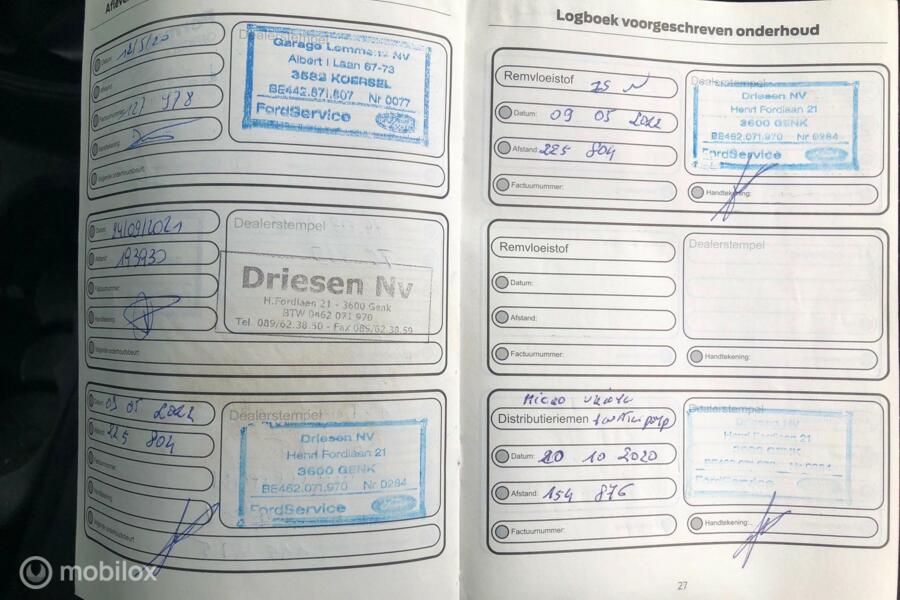 Datum: 12/5/20
Afstand:
Factuurnummer: 127 978
Handtekening:
Volgende onderhoudsbeurt:
Dealerstempel
Garage Lemmens NV
Albert I Laan 67-73
3582 KOERSEL
BE442.871.607 Nr 0077
FordService
Datum: 24/09/2021
Afstand: 193930
Factuurnummer:
Handtekening:
Volgende onderhoudsbeurt:
Dealerstempel
Driesen Nv
H.Fordlaan 21 - 3600 Genk
BTW 0462 071 970
Tel. 089/62.38.50 - Fax 089/62.38.59
Datum: 09 05 2022
Afstand: 225 804
Factuurnummer:
Handtekening:
Volgende onderhoudsbeurt:
Dealerstempel
Driesen NV
Henri Fordlaan 21
3600 GENK
BE462.071.970 Nr 0284
FordService
Logboek voorgeschreven onderhoud
Remvloeistof
Datum: 09 05 2022
Afstand: 225 804
Factuurnummer:
Dealerstempel
Driesen NV
Henri Fordlaan 21
3600 GENK
BE462.071.970 Nr 0284
FordService
Ford
Handtekening:
Remvloeistof
Datum:
Afstand:
Factuurnummer:
Dealerstempel
Handtekening:
Micro
Distributieriemen
Datum: 20 10 2020
Afstand: 154 876
Factuurnummer:
Dealerstempel
Driesen NV
Henri Fordlaan 21
3600 GENK
BE462.071.970 Nr 0284
FordService
Handtekening:
27
mobilox